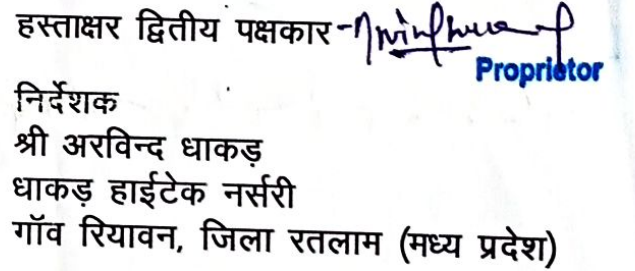 हस्ताक्षर द्वितीय पक्षकार-
Proprietor
निर्देशक
श्री अरविन्द धाकड़
धाकड़ हाईटेक नर्सरी
गॉव रियावन, जिला रतलाम (मध्य प्रदेश)